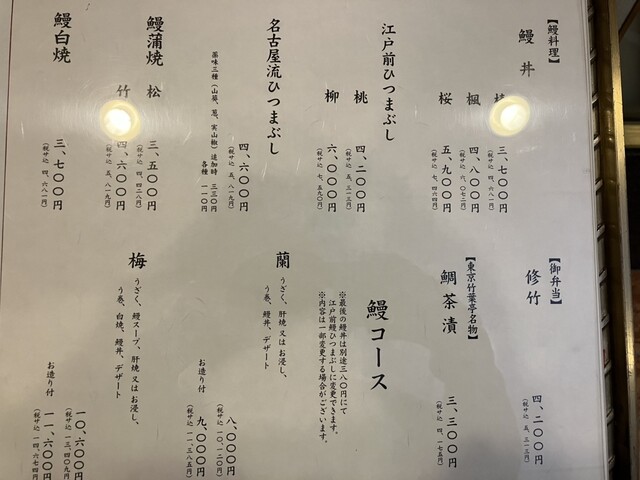 【鰻料理】
鰻丼
三、七〇〇円
(税サ込 四、六八一円)
楓 四、八〇〇円
(税サ込 六、〇七二円)
桜 五、九〇〇円
(税サ込 七、四六四円)
江戸前ひつまぶし
桃 四、二〇〇円
(税サ込 五、三一三円)
柳 六、〇〇〇円
(税サ込 七、五九〇円)
名古屋流ひつまぶし
四、六〇〇円
(税サ込 五、八一九円)
薬味三種(山葵、葱、実山椒)追加時 三三〇円
各種 一一〇円
鰻蒲焼 松 三、五〇〇円
(税サ込 四、四二八円)
竹 四、六〇〇円
(税サ込 五、八一九円)
鰻白焼
三、七〇〇円
(税サ込 四、六八一円)
【御弁当】
修竹 四、二〇〇円
(税サ込 五、三一三円)
【東京竹葉亭名物】
鯛茶漬 三、三〇〇円
(税サ込 四、一七五円)
鰻コース
※最後の鰻丼は別途三八〇円にて
江戸前鰻ひつまぶしに変更できます。
※内容は一部変更する場合がございます。
蘭 うざく、肝焼又はお浸し、
う巻、鰻丼、デザート
八、〇〇〇円
(税サ込 一〇、一二〇円)
お造り付 九、〇〇〇円
(税サ込 一一、三八五円)
梅 うざく、鰻スープ、肝焼又はお浸し、
う巻、白焼、鰻丼、デザート
一〇、六〇〇円
(税サ込 一三、四〇九円)
お造り付 一一、六〇〇円
(税サ込 一四、六七四円)